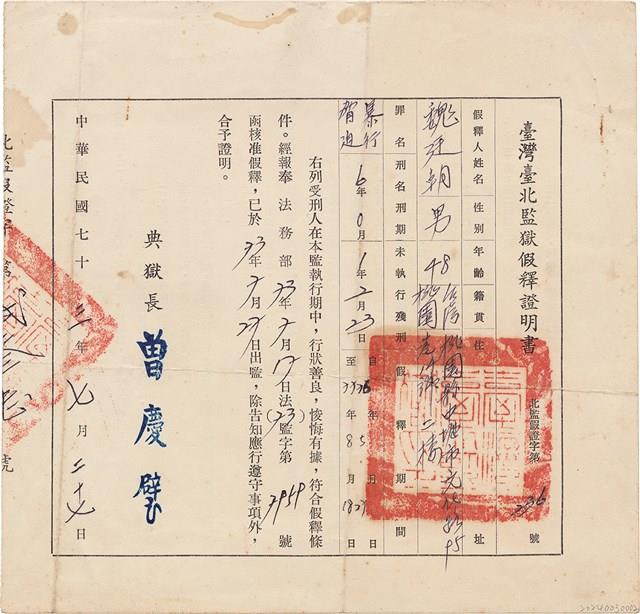 臺灣臺北監獄假釋證明書
北監假證字第 336 號
假釋人姓名 性別 年齡 籍貫 住址
魏廷朝 男 48 台灣桃園 桃園縣中壢市
罪名 刑名刑期 未執行殘刑 假釋期間
暴行脅迫 6年0月 1年2月23日 自 年 月 日 至 年 月 日
右列受刑人在本監執行期中,行狀善良,悛悔有據,符合假釋條
件。經報奉 法務部 73年7月17日法(73)監字第 7959 號
函核准假釋,已於 73年7月27日出監,除告知應行遵守事項外,
合予證明。
典獄長 曾慶
中華民國七十三年七月二十七日
北監假證字第 號
20240030002